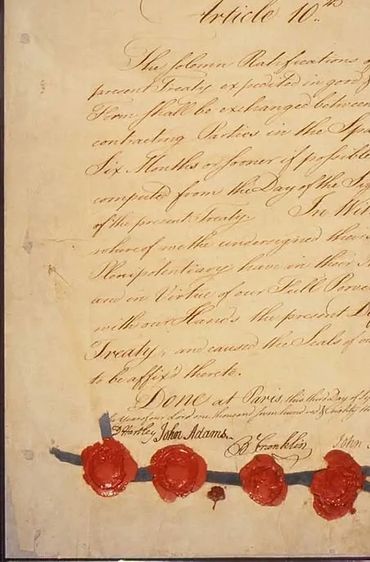 Article 10th
The solemn Ratifications of
present Treaty expedited in good &
Form shall be exchanged between
contracting Parties in the Spa
Six Months or sooner if possible
computed from the Day of the Sig
of the present Treaty. In Wit
whereof we the undersigned their
Plenipotentiary have in their
and in Virtue of our Full Powe
with our Hands the present De
Treaty, and caused the Seals of ou
to be affix'd thereto.
Done at Paris, this third Day of
Year of our Lord one thousand seven hundred & eighty three
D Hartley John Adams. B Franklin John